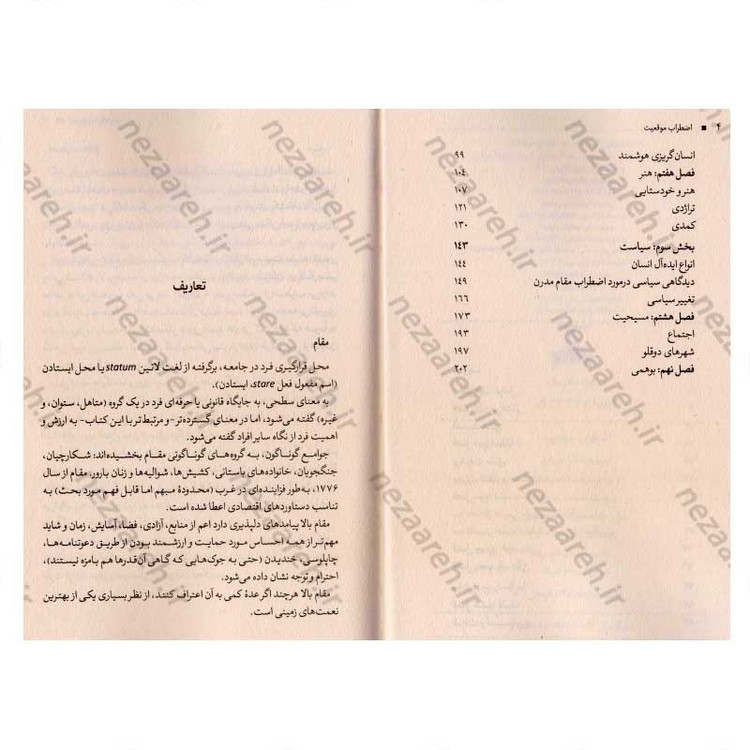 ۴ ■ اضطراب موقعیت
انسان‌گریزی هوشمند ۹۹
فصل هفتم: هنر ۱۰۴
هنر و خودستایی ۱۰۷
تراژدی ۱۲۱
کمدی ۱۳۰
بخش سوم: سیاست ۱۴۳
انواع ایده‌آل انسان ۱۴۴
دیدگاهی سیاسی درمورد اضطراب مقام مدرن ۱۴۹
تغییر سیاسی ۱۶۶
فصل هشتم: مسیحیت ۱۷۳
اجتماع ۱۹۳
شهرهای دوقلو ۱۹۷
فصل نهم: بوهمی ۲۰۲
تعاریف
مقام
محل قرارگیری فرد در جامعه، برگرفته از لغت لاتین statum یا محل ایستادن
(اسم مفعول فعل stare، ایستادن).
به معنای سطحی، به جایگاه قانونی یا حرفه‌ای فرد در یک گروه (متاهل، ستوان، و
غیره) گفته می‌شود، اما در معنای گسترده‌تر- و مرتبط‌تر با این کتاب- به ارزش و
اهمیت فرد از نگاه سایر افراد گفته می‌شود.
جوامع گوناگون، به گروه‌های گوناگونی مقام بخشیده‌اند: شکارچیان،
جنگجویان، خانواده‌های باستانی، کشیش‌ها، شوالیه‌ها و زنان بارور. مقام از سال
۱۷۷۶، به‌طور فزاینده‌ای در غرب (محدودهٔ مبهم اما قابل فهم مورد بحث) به
تناسب دستاوردهای اقتصادی اعطا شده است.
مقام بالا پیامدهای دلپذیری دارد اعم از منابع، آزادی، فضا، آسایش، زمان و شاید
مهم‌تر از همه احساس مورد حمایت و ارزشمند بودن از طریق دعوتنامه‌ها،
چاپلوسی، خندیدن (حتی به جوک‌هایی که گاهی آن‌قدرها هم بامزه نیستند)،
احترام و توجه نشان داده می‌شود.
مقام بالا هرچند اگر عدهٔ کمی به آن اعتراف کنند، از نظر بسیاری یکی از بهترین
نعمت‌های زمینی است.
nezaareh.ir